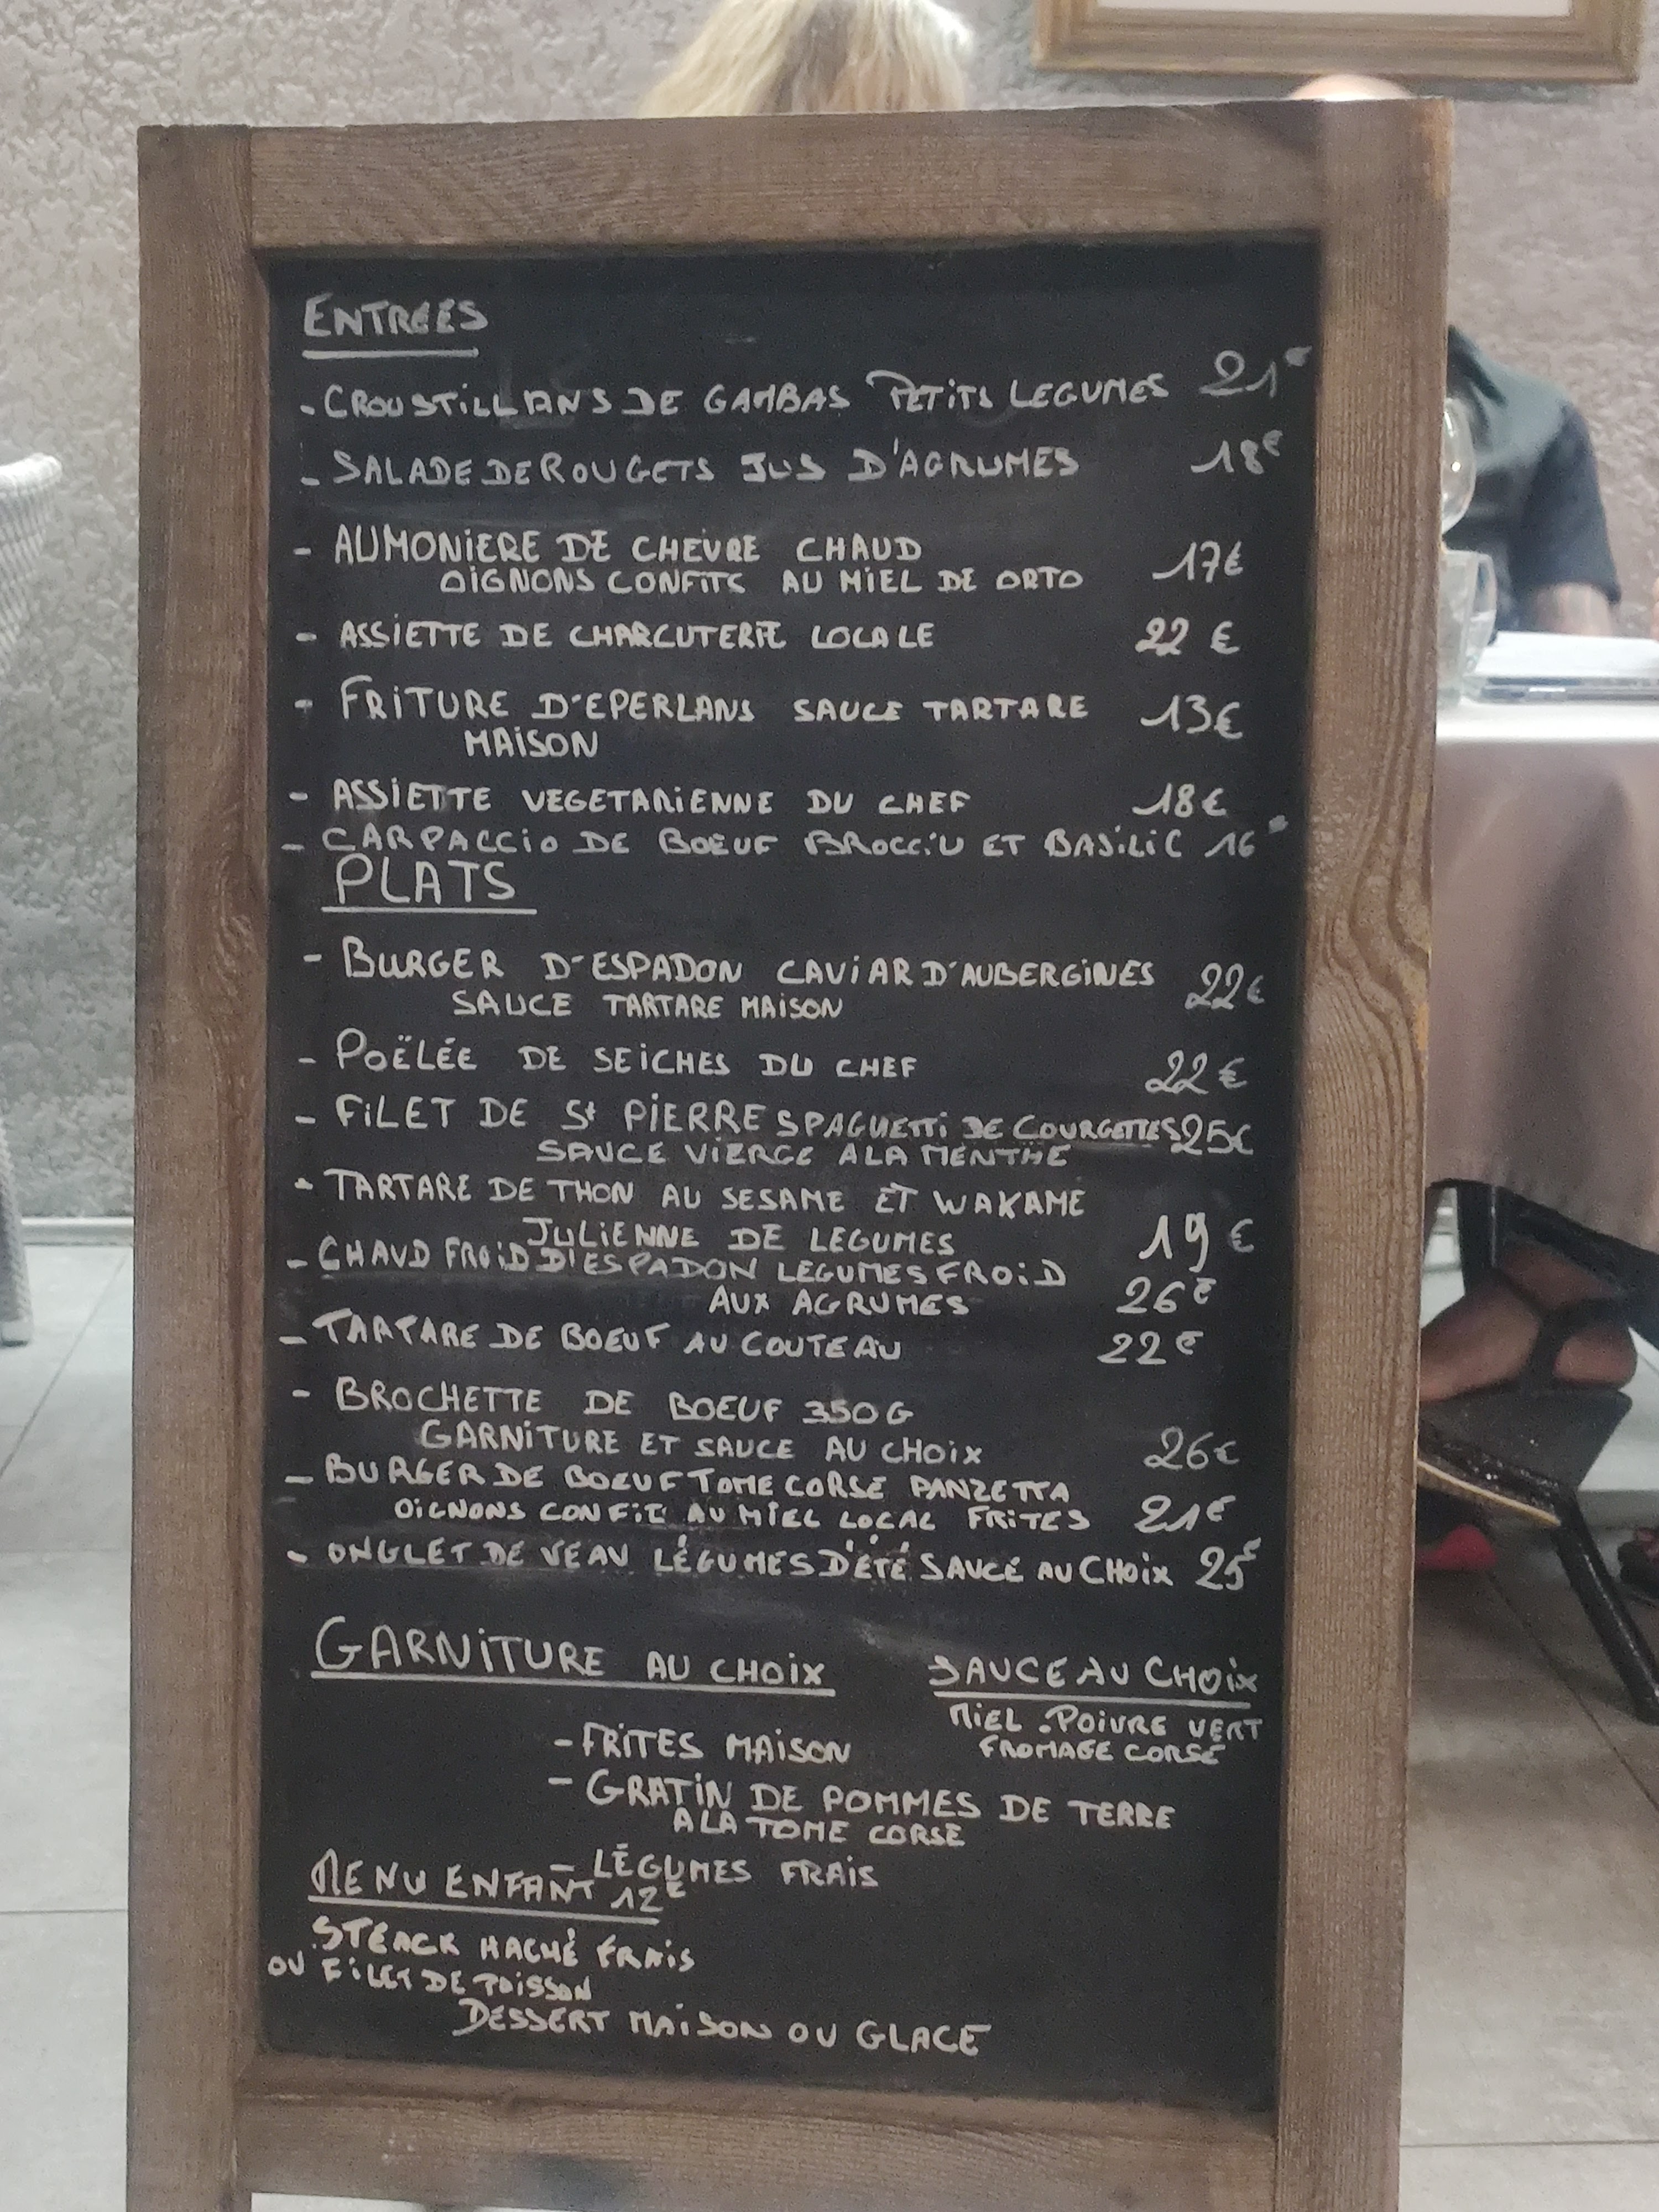 ENTRÉES
- CROUSTILLANS DE GAMBAS PETITS LEGUMES 21€
- SALADE DE ROUGETS JUS D'AGRUMES 18€
- AUMONIERE DE CHEVRE CHAUD 17€
OIGNONS CONFITS AU MIEL DE ORTO
- ASSIETTE DE CHARCUTERIE LOCALE 22 €
- FRITURE D'EPERLANS SAUCE TARTARE 13€
MAISON
- ASSIETTE VEGETARIENNE DU CHEF 18€
- CARPACCIO DE BOEUF BROCCIU ET BASILIC 16€
PLATS
- BURGER D'ESPADON CAVIAR D'AUBERGINES 22€
SAUCE TARTARE MAISON
- POËLÉE DE SEICHES DU CHEF 22€
- FILET DE St PIERRE SPAGUETTI DE COURGETTES 25€
SAUCE VIERGE A LA MENTHE
- TARTARE DE THON AU SESAME ET WAKAME
JULIENNE DE LEGUMES 19 €
- CHAUD FROID D'ESPADON LEGUMES FROID
AUX AGRUMES 26€
- TARTARE DE BOEUF AU COUTEAU 22€
- BROCHETTE DE BOEUF 350G
GARNITURE ET SAUCE AU CHOIX 26€
- BURGER DE BOEUF TOME CORSE PANZETTA
OIGNONS CONFIT AU MIEL LOCAL FRITES 21€
- ONGLET DE VEAU LÉGUMES D'ÉTÉ SAUCE AU CHOIX 25€
GARNITURE AU CHOIX
- FRITES MAISON
- GRATIN DE POMMES DE TERRE
A LA TOME CORSE
- LÉGUMES FRAIS
SAUCE AU CHOIX
MIEL . POIVRE VERT
FROMAGE CORSE
MENU ENFANT 12€
STEACK HACHÉ FRAIS
OU FILET DE POISSON
DESSERT MAISON OU GLACE